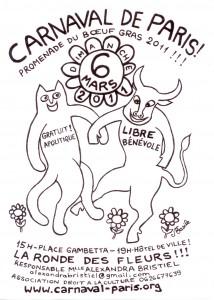 CARNAVAL DE PARIS!
PROMENADE DU BŒUF GRAS 2011 !!!
DIMANCHE
6
MARS
2011
GRATUIT!
APOLITIQUE
LIBRE
BÉNÉVOLE
15H-PLACE GAMBETTA-19H-HÔTEL DE VILLE!
LA RONDE DES FLEURS!!!
RESPONSABLE MLLE ALEXANDRA BRISTIEL
alexandrabristiel@gmail.com
ASSOCIATION DROIT A LA CULTURE 0626479639
www.carnaval-paris.org